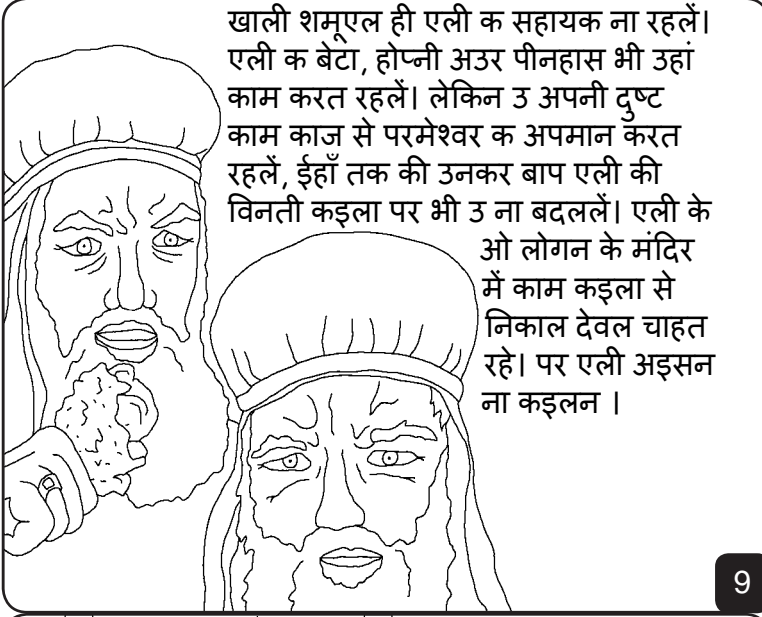 खाली शमूएल ही एली क सहायक ना रहलें।
एली क बेटा, होप्नी अउर पीनहास भी उहां
काम करत रहलें। लेकिन उ अपनी दुष्ट
काम काज से परमेश्वर क अपमान करत
रहलें, ईहाँ तक की उनकर बाप एली की
विनती कइला पर भी उ ना बदललें। एली के
ओ लोगन के मंदिर
में काम कइला से
निकाल देवल चाहत
रहे। पर एली अइसन
ना कइलन ।
9